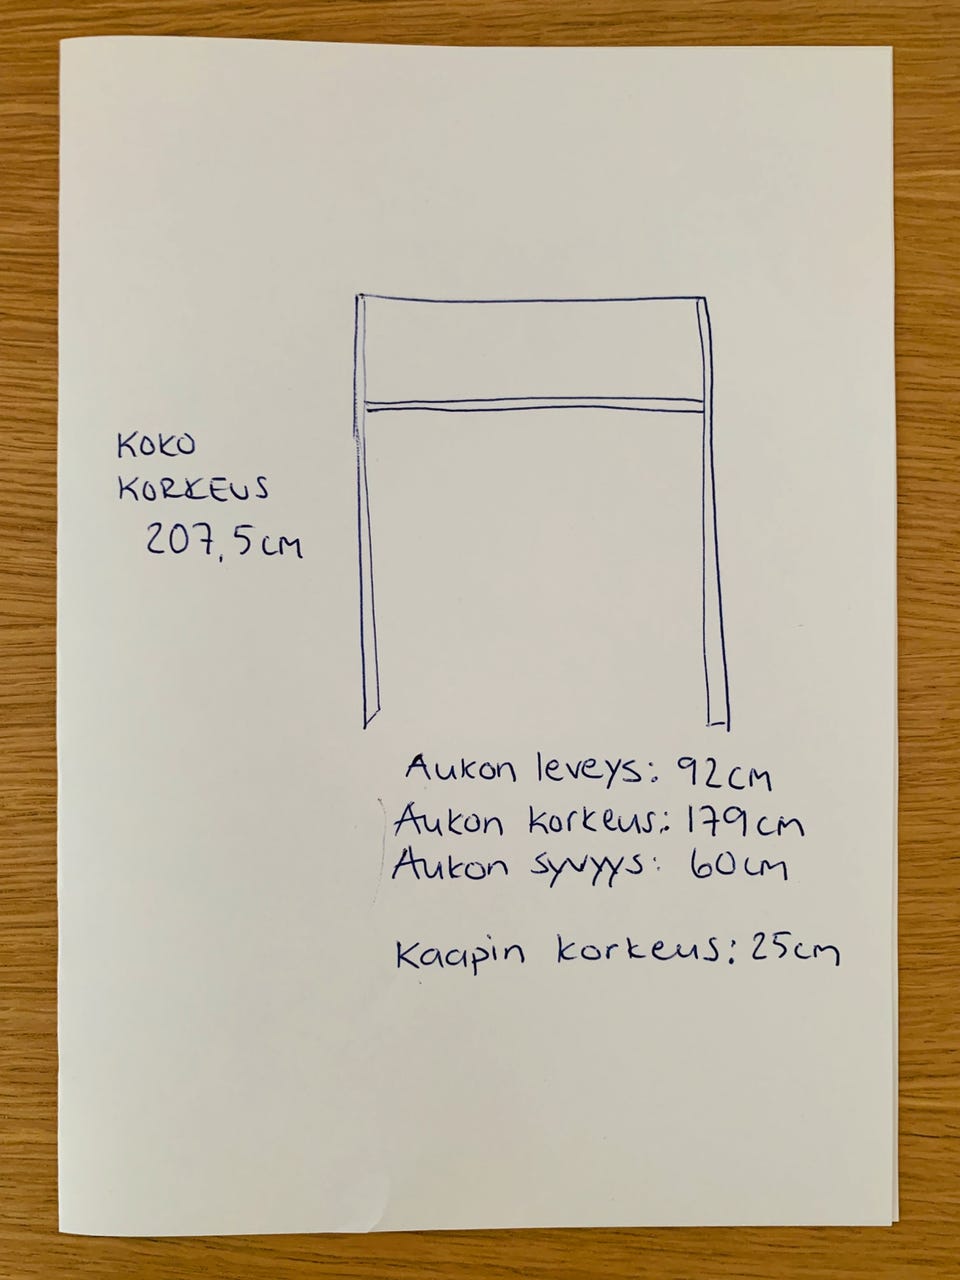 KOKO
KORKEUS
207,5cm
Aukon leveys: 92cm
Aukon korkeus: 179cm
Aukon syvyys: 60cm
Kaapin korkeus: 25cm